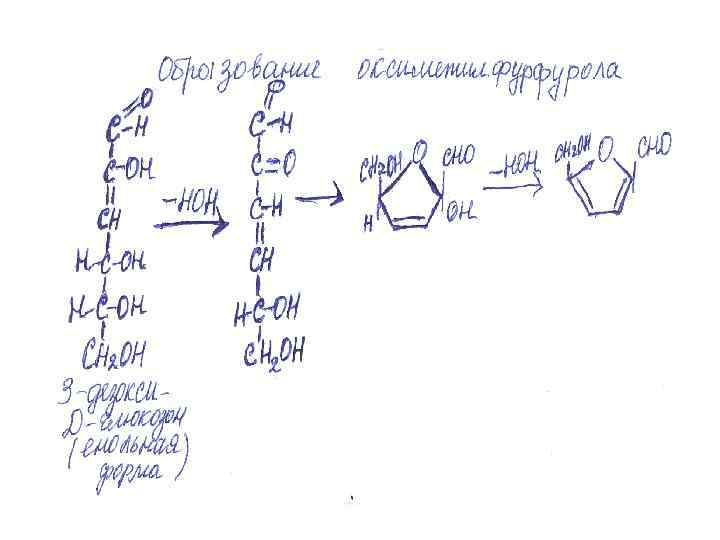 Образование оксиметилфурфурола
O
C-H
C-OH
CH
H-C-OH
H-C-OH
CH2OH
3-дезокси-
D-глюкозон
(енольная
форма)
-HOH
O
C-H
C=O
C-H
CH
H-C-OH
CH2OH
CH2OH O CHO
H OH
-HOH
CH2OH O CHO